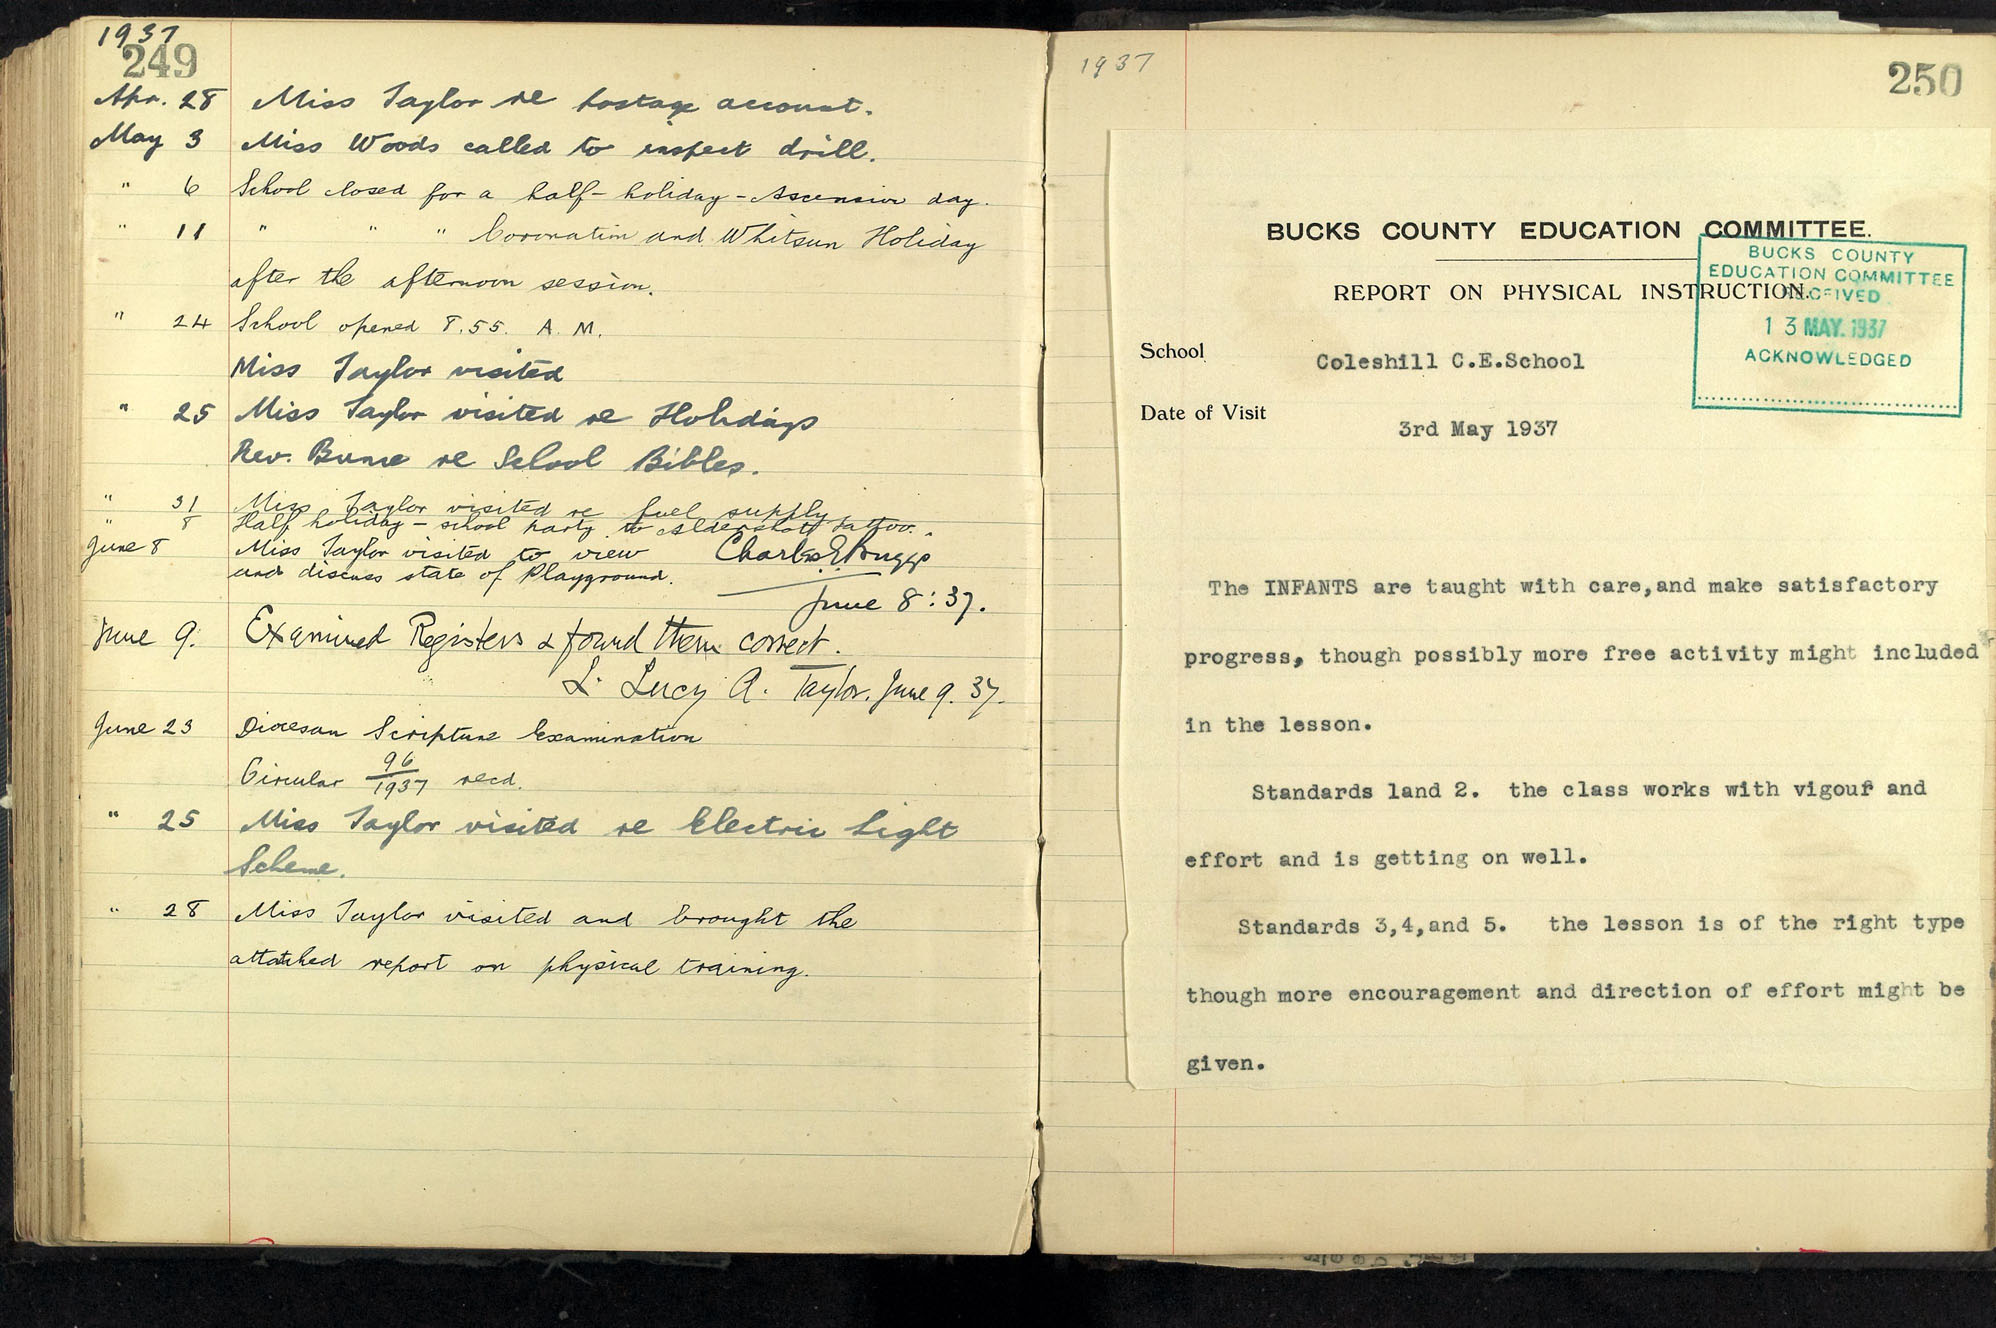 1937
249
Apr. 28 Miss Taylor re postage account.
May 3 Miss Woods called to inspect drill.
" 6 School closed for a half-holiday - Ascension day.
" 11 " " " Coronation and Whitsun Holiday
after the afternoon session.
" 24 School opened 8.55. A.M.
Miss Taylor visited
" 25 Miss Taylor visited re Holidays
Rev. re School Bibles.
" 31 Miss Taylor visited re fuel supply
" 8 Half holiday - school party to Aldershott Tattoo.
June 8 Miss Taylor visited to view
and discuss state of Playground.
Charles E
June 8:37.
June 9. Examined Registers & found them correct.
L. Lucy A. Taylor. June 9. 37.
June 23 Diocesan Scripture Examination
Circular 96/1937 recd.
" 25 Miss Taylor visited re Electric Light
Scheme.
" 28 Miss Taylor visited and brought the
attatched report on physical training.
1937
250
BUCKS COUNTY EDUCATION COMMITTEE.
REPORT ON PHYSICAL INSTRUCTION.
BUCKS COUNTY
EDUCATION COMMITTEE
RECEIVED
13 MAY. 1937
ACKNOWLEDGED
School Coleshill C.E.School
Date of Visit 3rd May 1937
The INFANTS are taught with care,and make satisfactory
progress, though possibly more free activity might included
in the lesson.
Standards 1and 2. the class works with vigour and
effort and is getting on well.
Standards 3,4,and 5. the lesson is of the right type
though more encouragement and direction of effort might be
given.